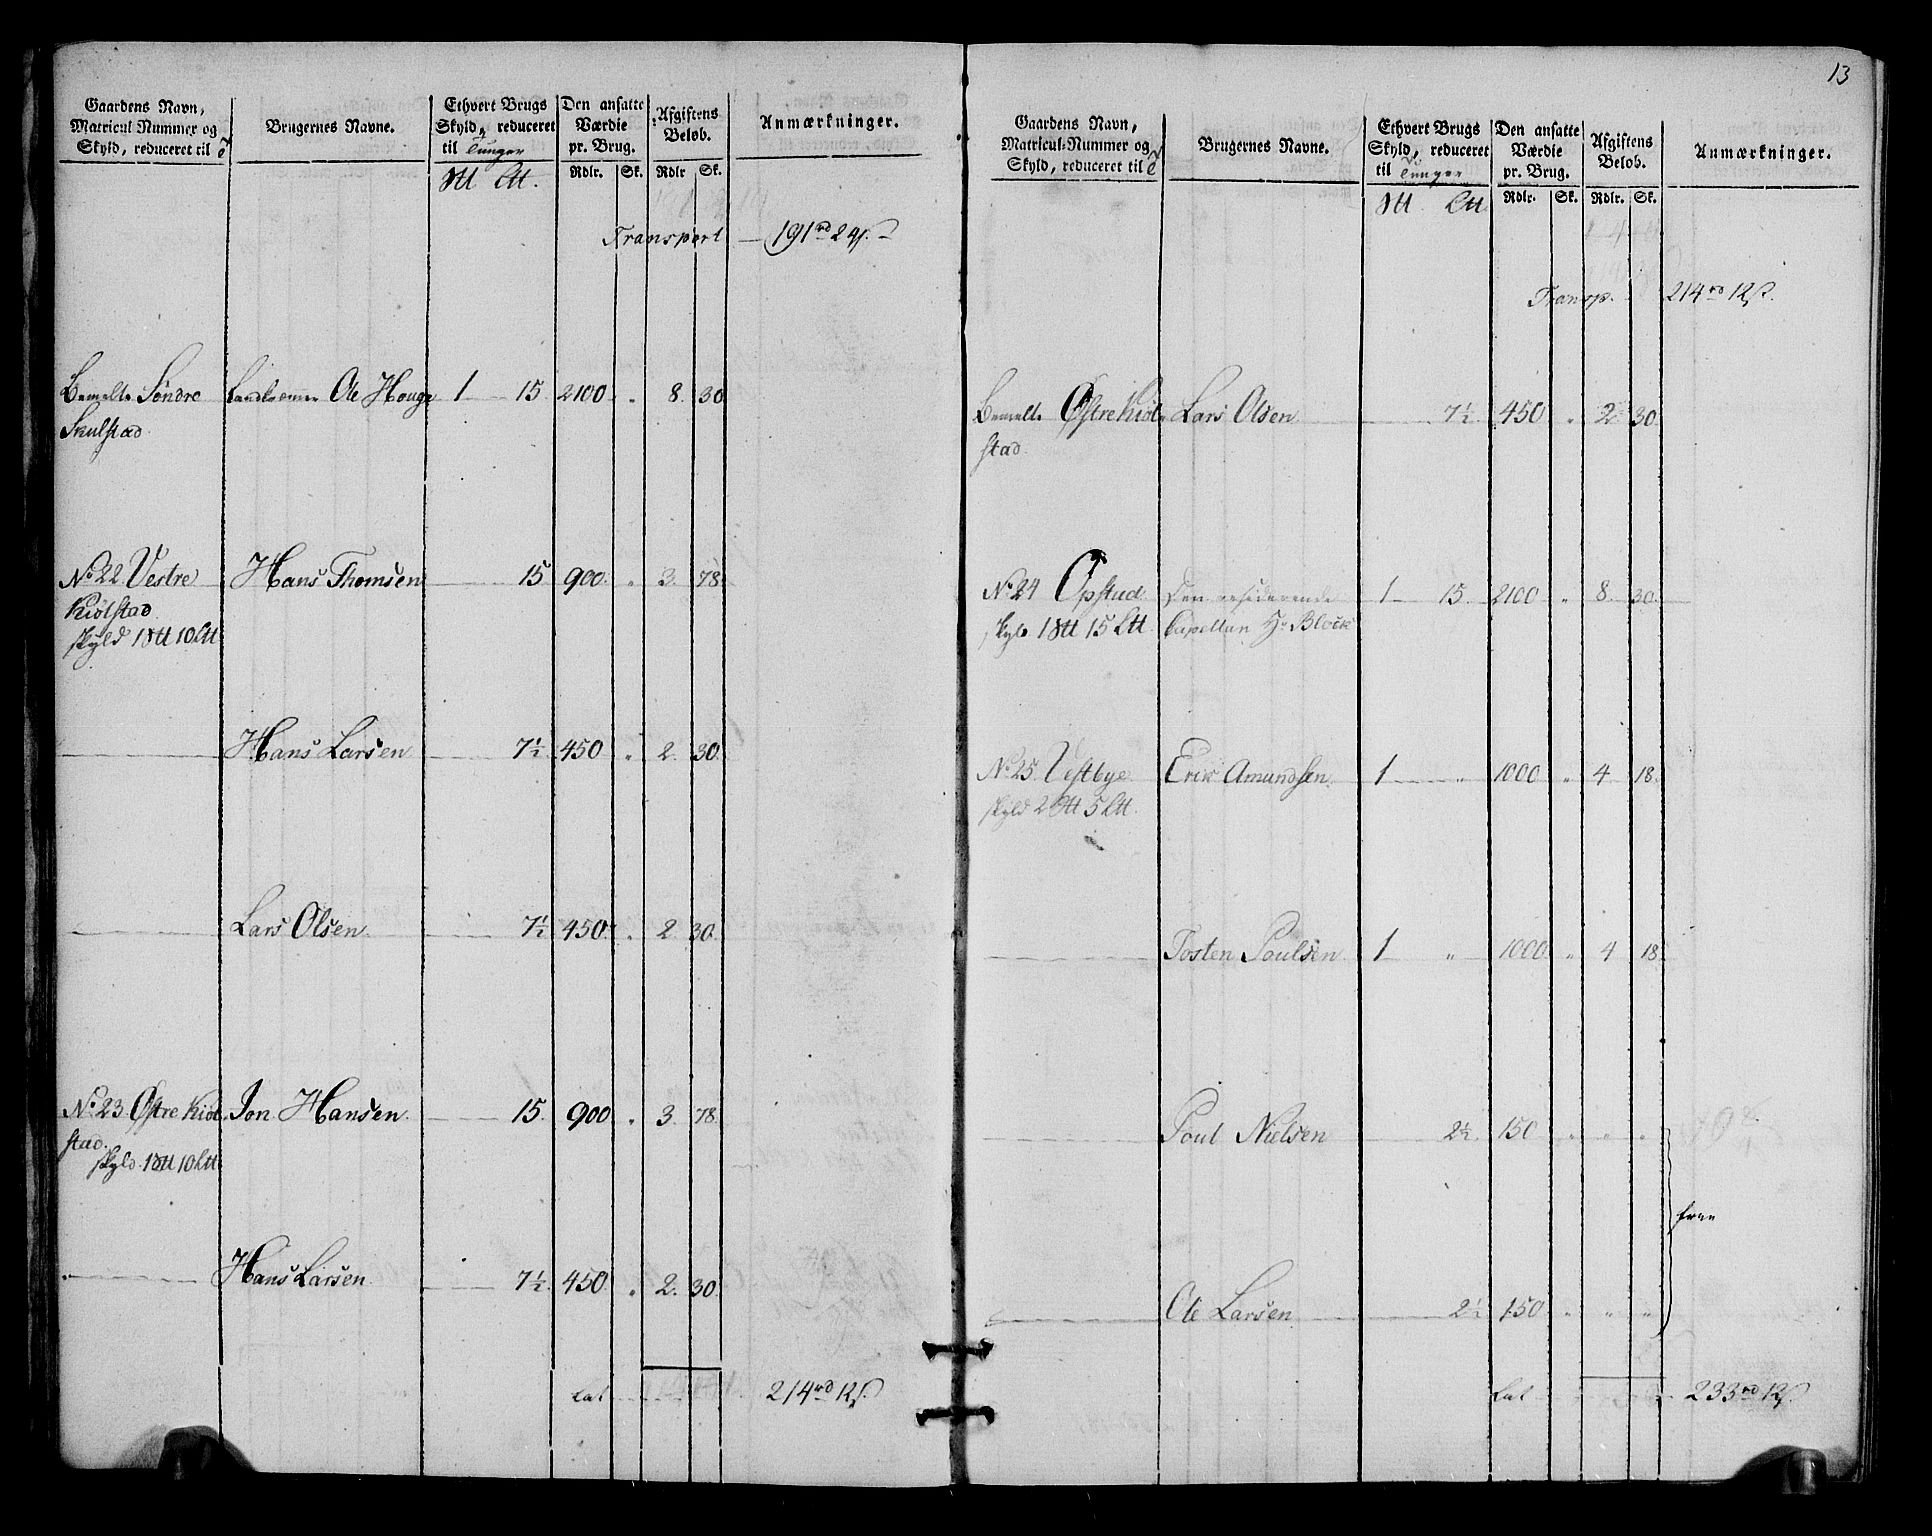 Gaardens Navn,
Matricul Nummer og
Skyld, reduceret til
Brugernes Navne.
Ethvert Brugs
Skyld, reduceret
til Tunger
Den ansatte
Værdie
pr. Brug.
Rdlr. Sk.
Afgiftens
Beløb.
Rdlr Sk.
Anmærkninger.
Transport 191 rd 24 s.
Bemelte Søndre Ole Houge 1 15 2100 " 8. 30
Skulstad
No. 22 Vestre Hans Thomsen 15 900. " 3. 78.
Kiølstad
skyld 1 10
Hans Larsen 7½ 450 " 2. 30.
Lars Olsen 7½ 450 " 2. 30.
No. 23 Østre Kiøl Jon Hansen 15. 900 " 3. 78.
stad
skyld 1 10
Hans Larsen 7½ 450 " 2. 30.
Lat 214 rd 12 s.
13
Gaardens Navn,
Matricul-Nummer og
Skyld, reduceret til
Brugernes Navne.
Ethvert Brugs
Skyld, reduceret
til Tunger
Den ansatte
Værdie
pr. Brug.
Rdlr. Sk.
Afgiftens
Beløb.
Rdlr. Sk.
Anmærkninger.
Transp. 214 rd 12 s.
Bemelte Østre Kiøl Lars Olsen 7½ 450 " 2 30.
stad
No. 24 Opstad Den residerende 1 15. 2100 " 8. 30.
skyld 1 15 Capellan Hr Block
No. 25. Vestbye Erik Amundsen 1 " 1000 " 4 18.
skyld 2 5
Tosten Poulsen 1 " 1000 " 4 18.
Poul Nielsen 2½ 150 " " "
frie
Ole Larsen 2½ 150 " " "
Lat 233 rd 12 s.